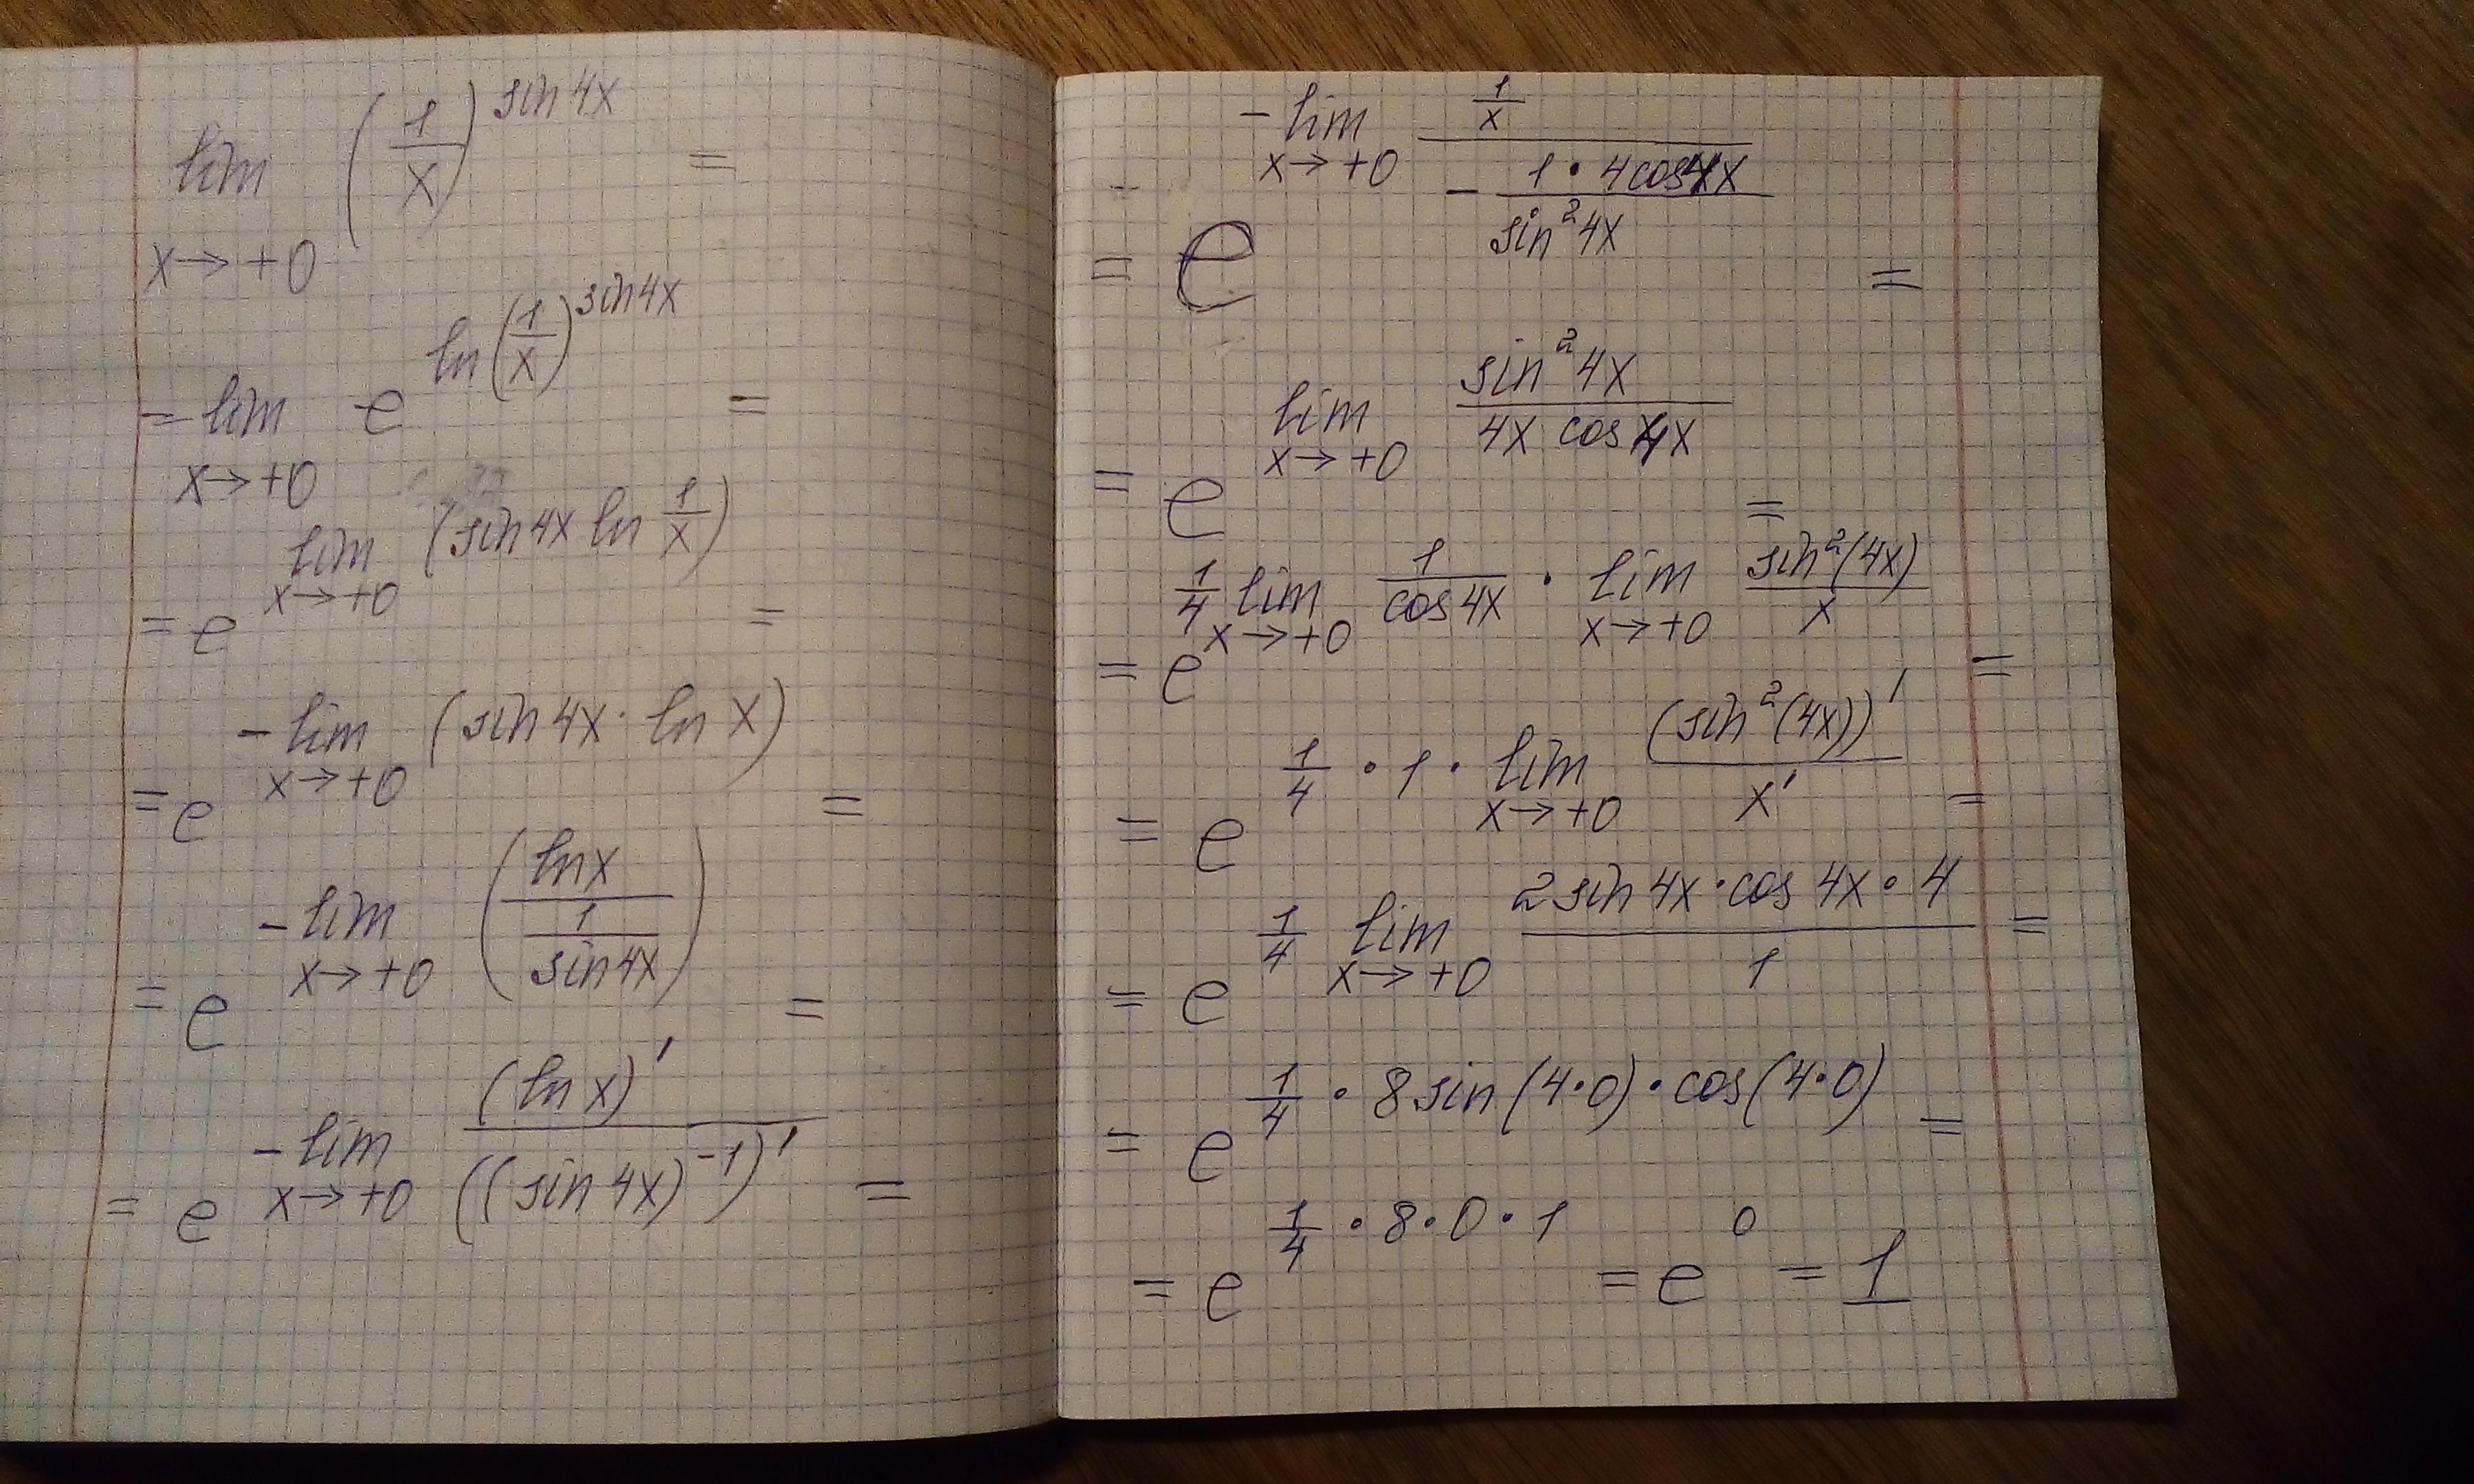 lim_{x→+0} (1/x)^{sin 4x} =
= lim_{x→+0} e^{ln(1/x)^{sin 4x}} =
= e^{lim_{x→+0} (sin 4x ln 1/x)} =
= e^{-lim_{x→+0} (sin 4x · ln x)} =
= e^{-lim_{x→+0} (ln x / (1 / sin 4x))} =
= e^{-lim_{x→+0} (ln x)' / ((sin 4x)^{-1})'} =
= e^{-lim_{x→+0} (1/x) / (- (1 · 4cos 4x) / (sin^2 4x))} =
= e^{lim_{x→+0} (sin^2 4x) / (4x cos 4x)} =
= e^{1/4 lim_{x→+0} 1/(cos 4x) · lim_{x→+0} (sin^2(4x)) / x} =
= e^{1/4 · 1 · lim_{x→+0} (sin^2(4x))' / x'} =
= e^{1/4 lim_{x→+0} (2 sin 4x · cos 4x · 4) / 1} =
= e^{1/4 · 8 sin(4·0) · cos(4·0)} =
= e^{1/4 · 8 · 0 · 1} = e^0 = 1